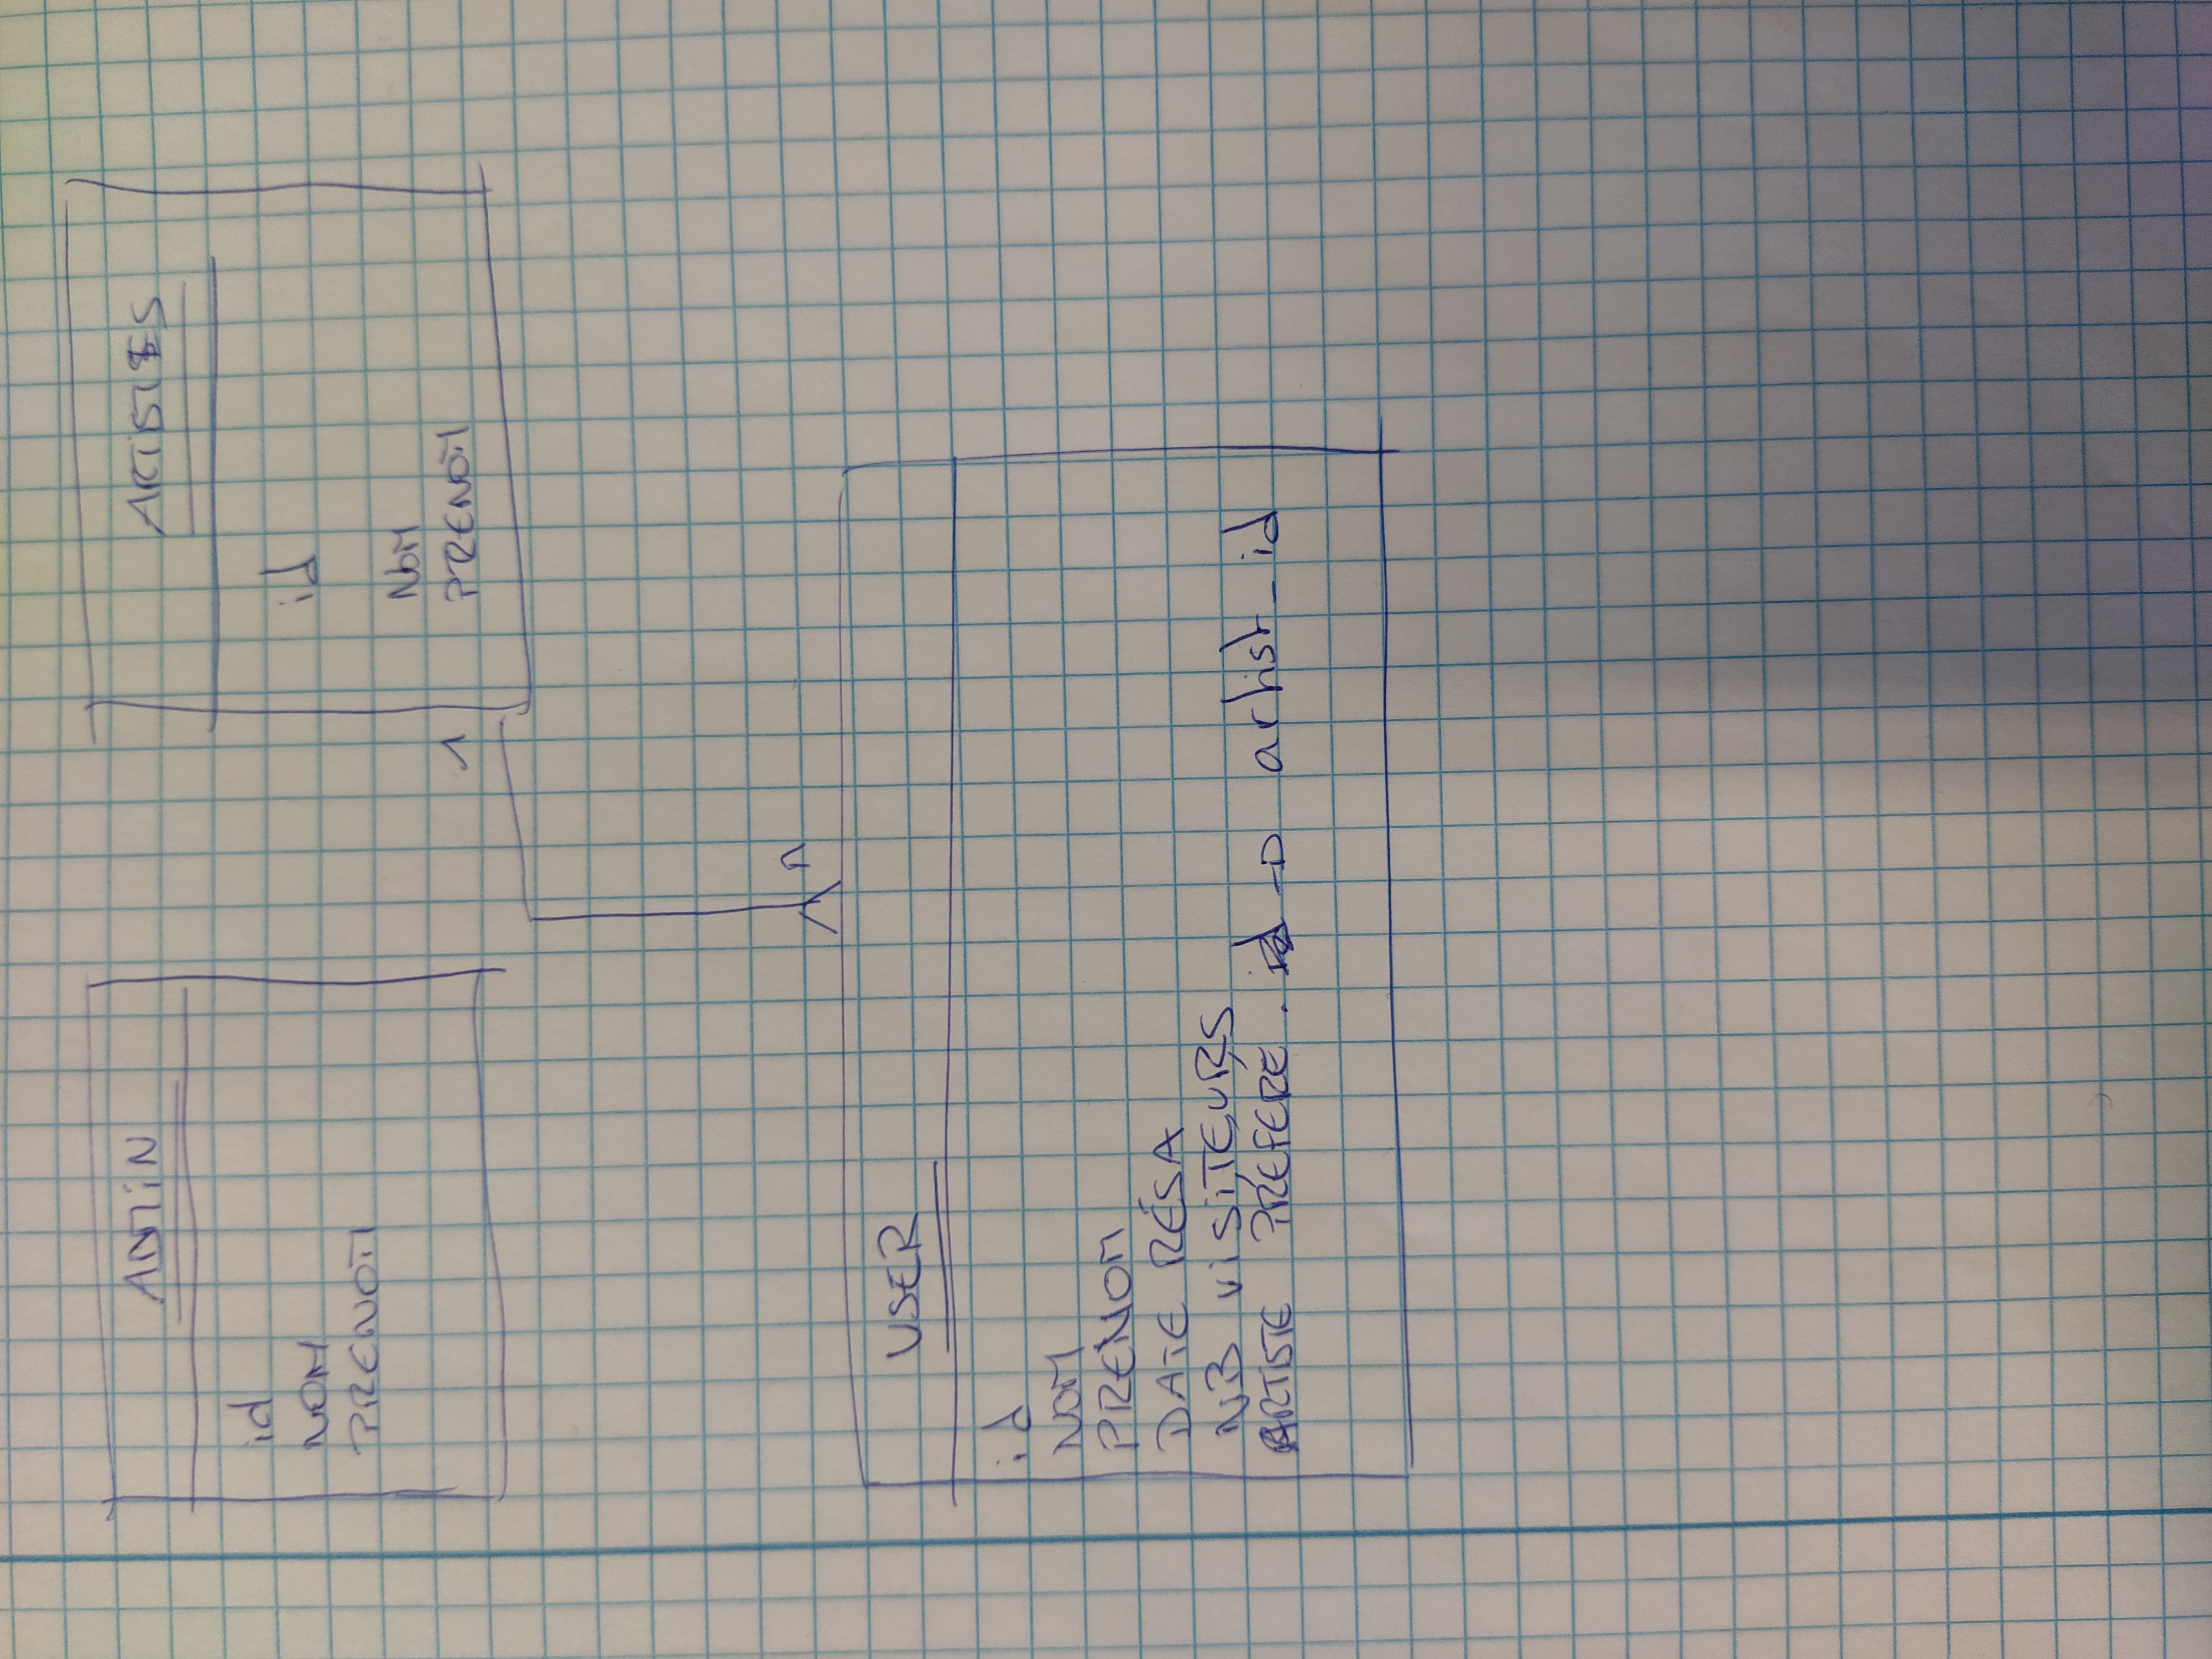 ADMiN
id
NOM
PRENOM
ARTISTES
id
NOM
PRENOM
1
n
USER
id
NOM
PRENOM
DATE RÉSA
NB ViSiTEURS
ARTISTE PRÉFÉRÉ . artist_id